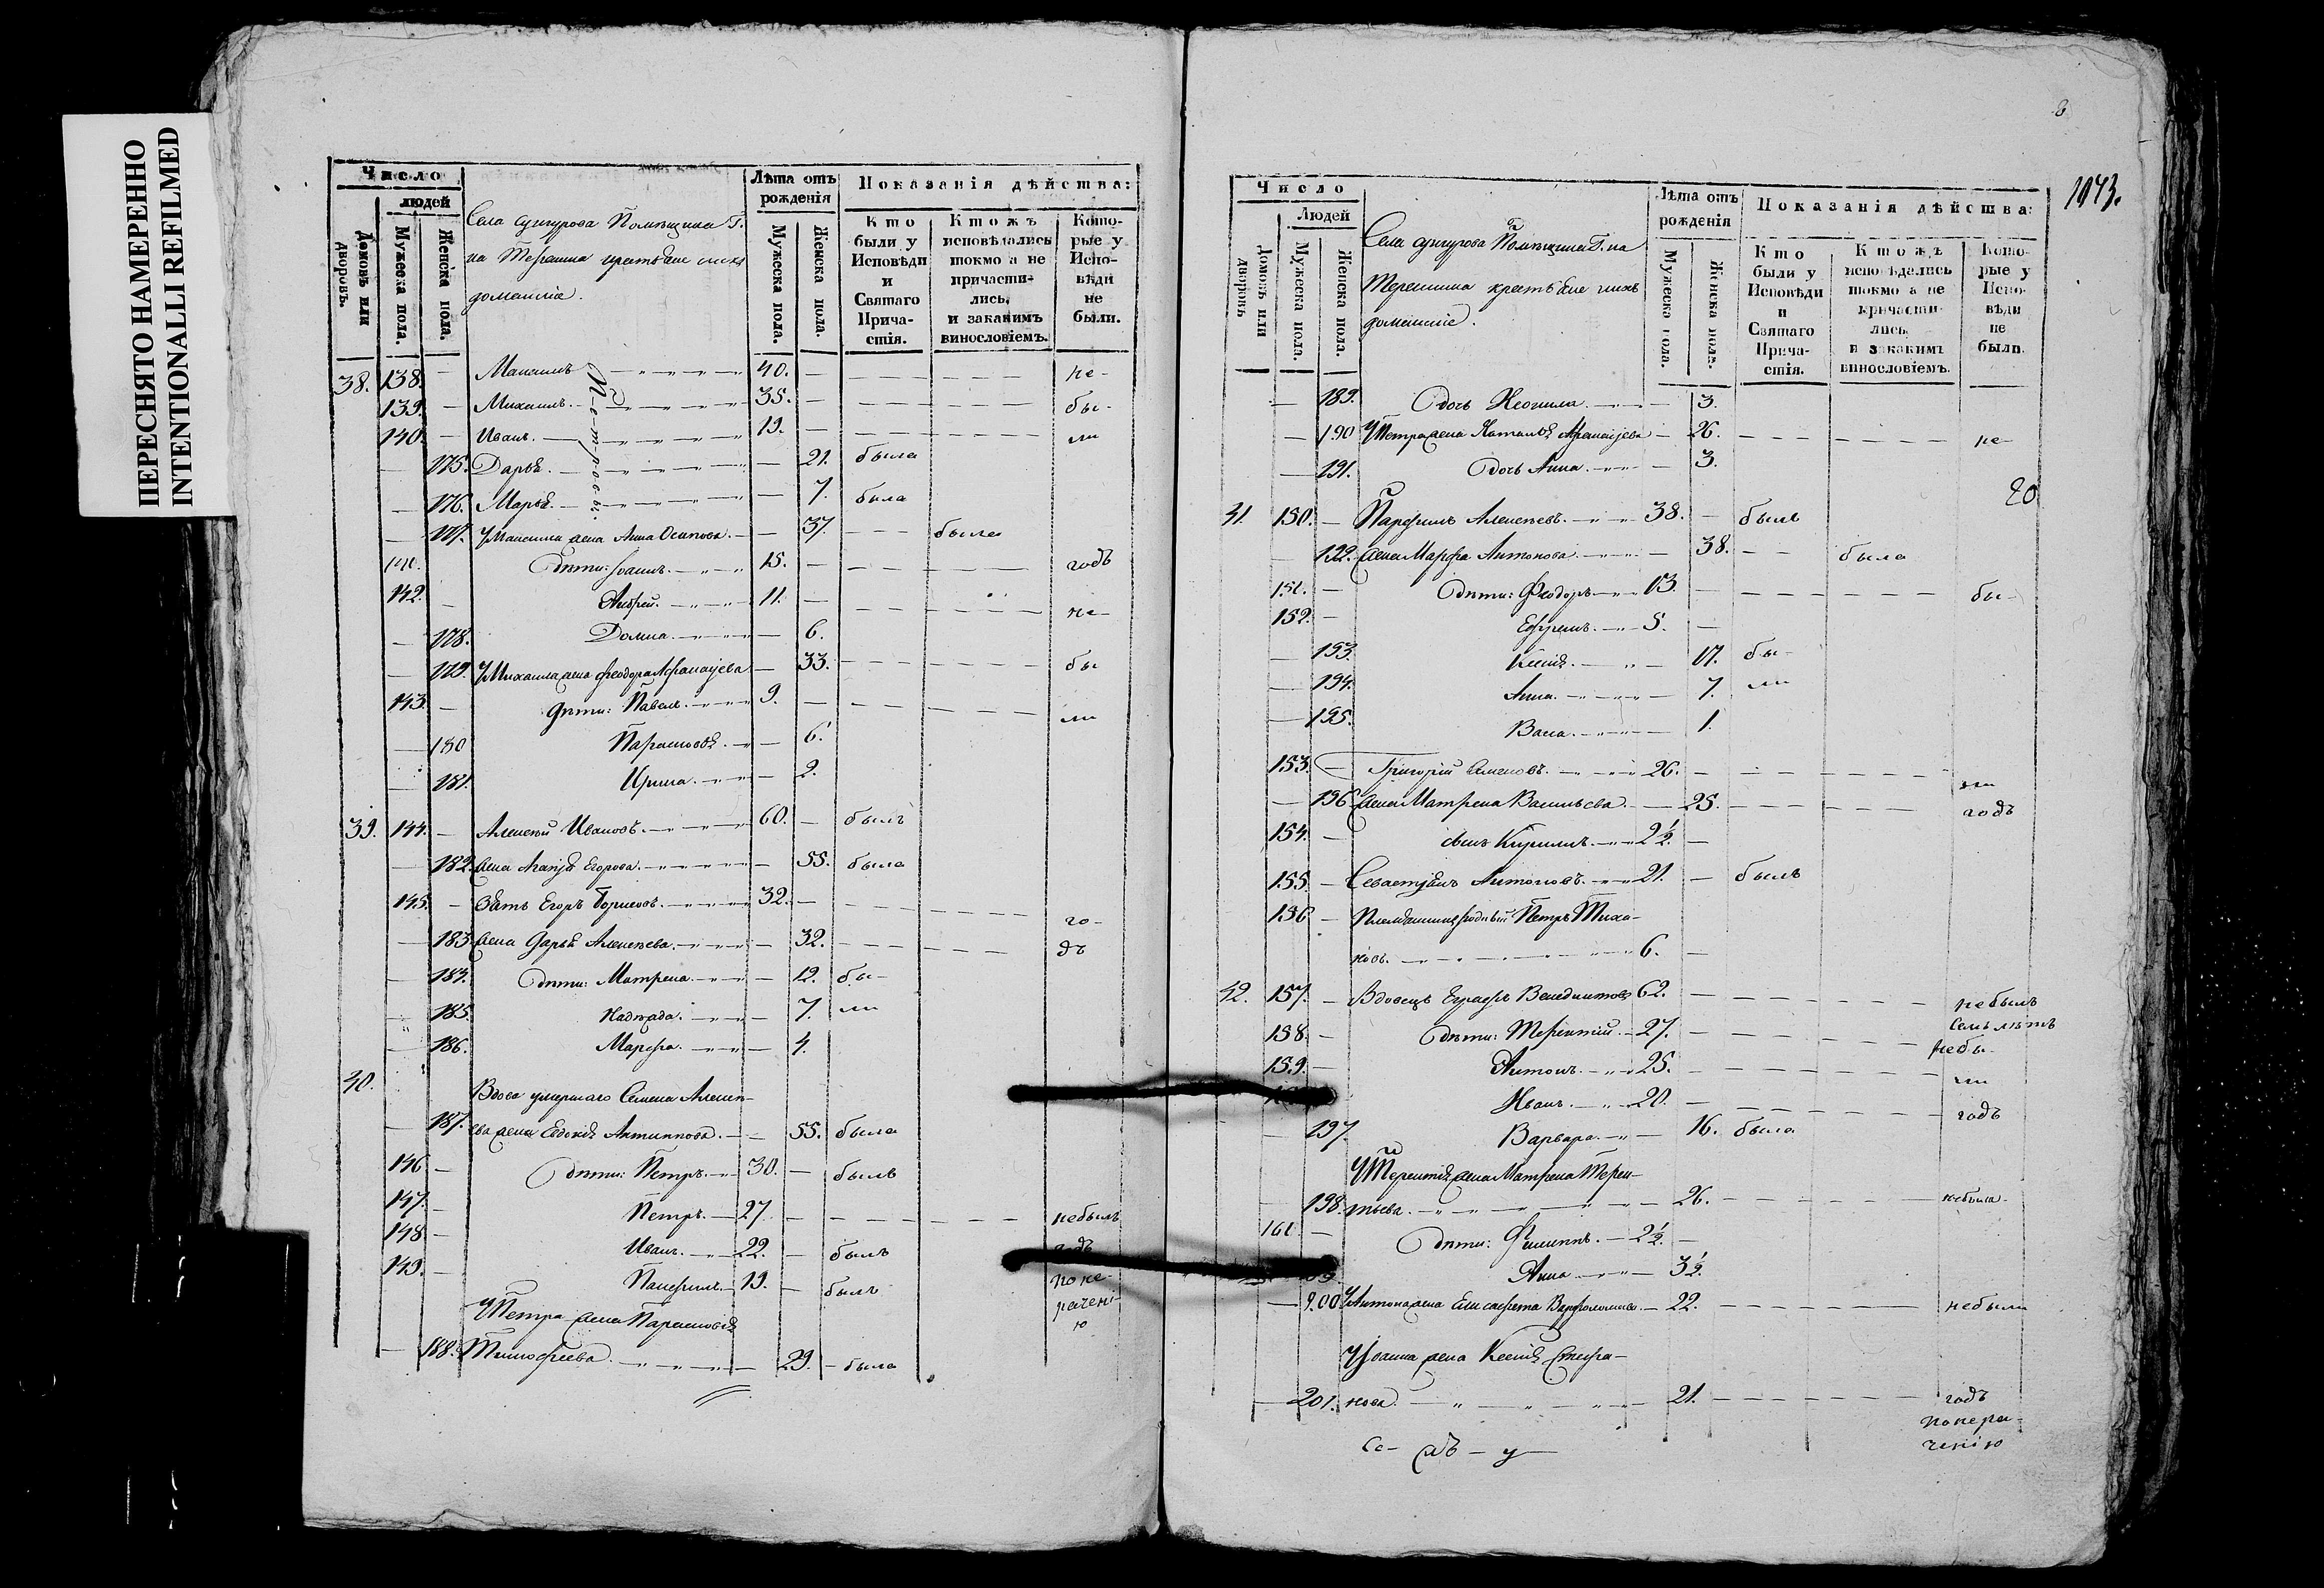 ПЕРЕСНЯТО НАМЕРЕННО
INTENTIONALLI REFILMED
Число
людей
Домовъ или дворовъ.
Мужеска пола.
Женска пола.
Села Сунгурова Помѣщика Г.
на Терешина крестьяне и ихъ
домашніе.
Лѣта отъ рожденія
Мужеска пола.
Женска пола.
Показанія дѣйства:
Кто были у Исповѣди и Святаго Прича-стія.
Ктожъ исповѣдались токмо а не причасти-лись, и закакимъ винословіемъ.
Кото-рые у Испо-вѣди не были.
38. 138. — Максимъ 40. — не-
139. — Михаилъ. 35. — бы-
140. — Иванъ. 19. — ли
Петровы.
— 175. Дарья. — 21. была
— 176. Марья. — 7. была
— 177. У Максима жена Анна Осипова. — 37. — была
141. Дѣти: Іоаннъ. 15. — годъ
142. — Андрей. 11. — не-
— 178. Домна. — 6.
— 179. У Михаила жена Феодора Афанасьева — 33. бы
143. — Дѣти: Павелъ. 9. — ли
— 180 Парасковья. — 6.
— 181. Ирина. — 2.
39. 144. — Алексѣй Ивановъ. 60. — былъ
— 182. жена Агафья Егорова. — 55. была
145. — Зять Егоръ Борисовъ. 32. — го-
— 183. жена Дарья Алексѣева. — 32. дъ
— 184. Дѣти: Матрена. — 12. бы-
— 185. Надежда. — 7. ли
— 186. Марфа. — 4.
40. Вдова умершаго Семена Алексѣ-
— 187. ева жена Евдокія Антиппова. — 55. была
146 — Дѣти: Петръ. 30. — былъ
147. — Петръ. 27 — небылъ
148 — Иванъ. 22. — былъ годъ
149. — Панфилъ. 19. — былъ поне-
раченію
У Петра жена Парасковья
— 188. Тимофеева. — 29. — была
1043.
Число
Людей
Домовъ или дворовъ
Мужеска пола.
Женска пола.
Села Сунгурова Помѣщика Г. на
Терешина крестьяне и ихъ
домашніе.
Лѣта отъ рожденія
Мужеска пола.
Женска пола.
Показанія дѣйства:
Кто были у Исповѣди и Святаго Прича-стія.
Ктожъ исповѣдались токмо а не причасти-лись, и закакимъ винословіемъ.
Кото-рые у Испо-вѣди не были.
— 189. Дочь Неонила. — 3.
— 190 У Петра жена Наталья Афанасьева — 26. не-
— 191. Дочь Анна. — 3.
20
41. 150. — Парфилъ Алексѣевъ. 38. — былъ
— 192. жена Марфа Антонова. — 38. — была
151. — Дѣти: Феодоръ. 13. — бы-
152. — Ефремъ. 5. —
— 193. Ксенія. — 17. бы-
— 194. Анна. — 7. ли
— 195. Васса. — 1.
153. — Григорій Семеновъ. 26. — ли
— 196 жена Матрена Васильева. — 25. годъ
154. — сынъ Кирилъ. 2½. —
155. — Севастьянъ Антоновъ. 21. — былъ
156 — Племянникъ родный Петръ Тихо-
новъ. 6. —
42. 157. — Вдовецъ Евграфъ Венедиктовъ 62. — небылъ
семь лѣтъ
158. — Дѣти: Терентій. 27. — небы-
159. — Антонъ. 25. — ли
Иванъ. 20. — годъ
— 197. Варвара. — 16. была
У Терентія жена Матрена Терен-
— 198. тьева. — 26. небыла
161. — Дѣти: Филиппъ. 2½. —
Анна — 3½.
— 200 У Антона жена Елисавета Варфоломеева. — 22. небыла
У Іоанна жена Ксенія Стефа-
— 201. нова. — 21. годъ
понера-
ченію